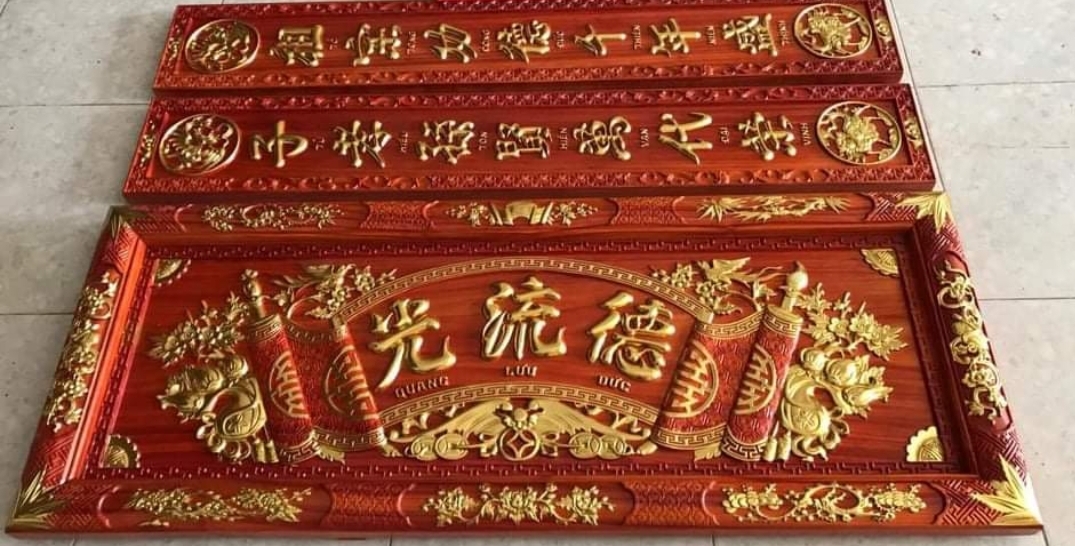 祖宗功德千年盛
TỔ TÔNG CÔNG ĐỨC THIÊN NIÊN THỊNH
子孝孫賢萬代榮
TỬ HIẾU TÔN HIỀN VẠN ĐẠI VINH
光流德
QUANG LƯU ĐỨC